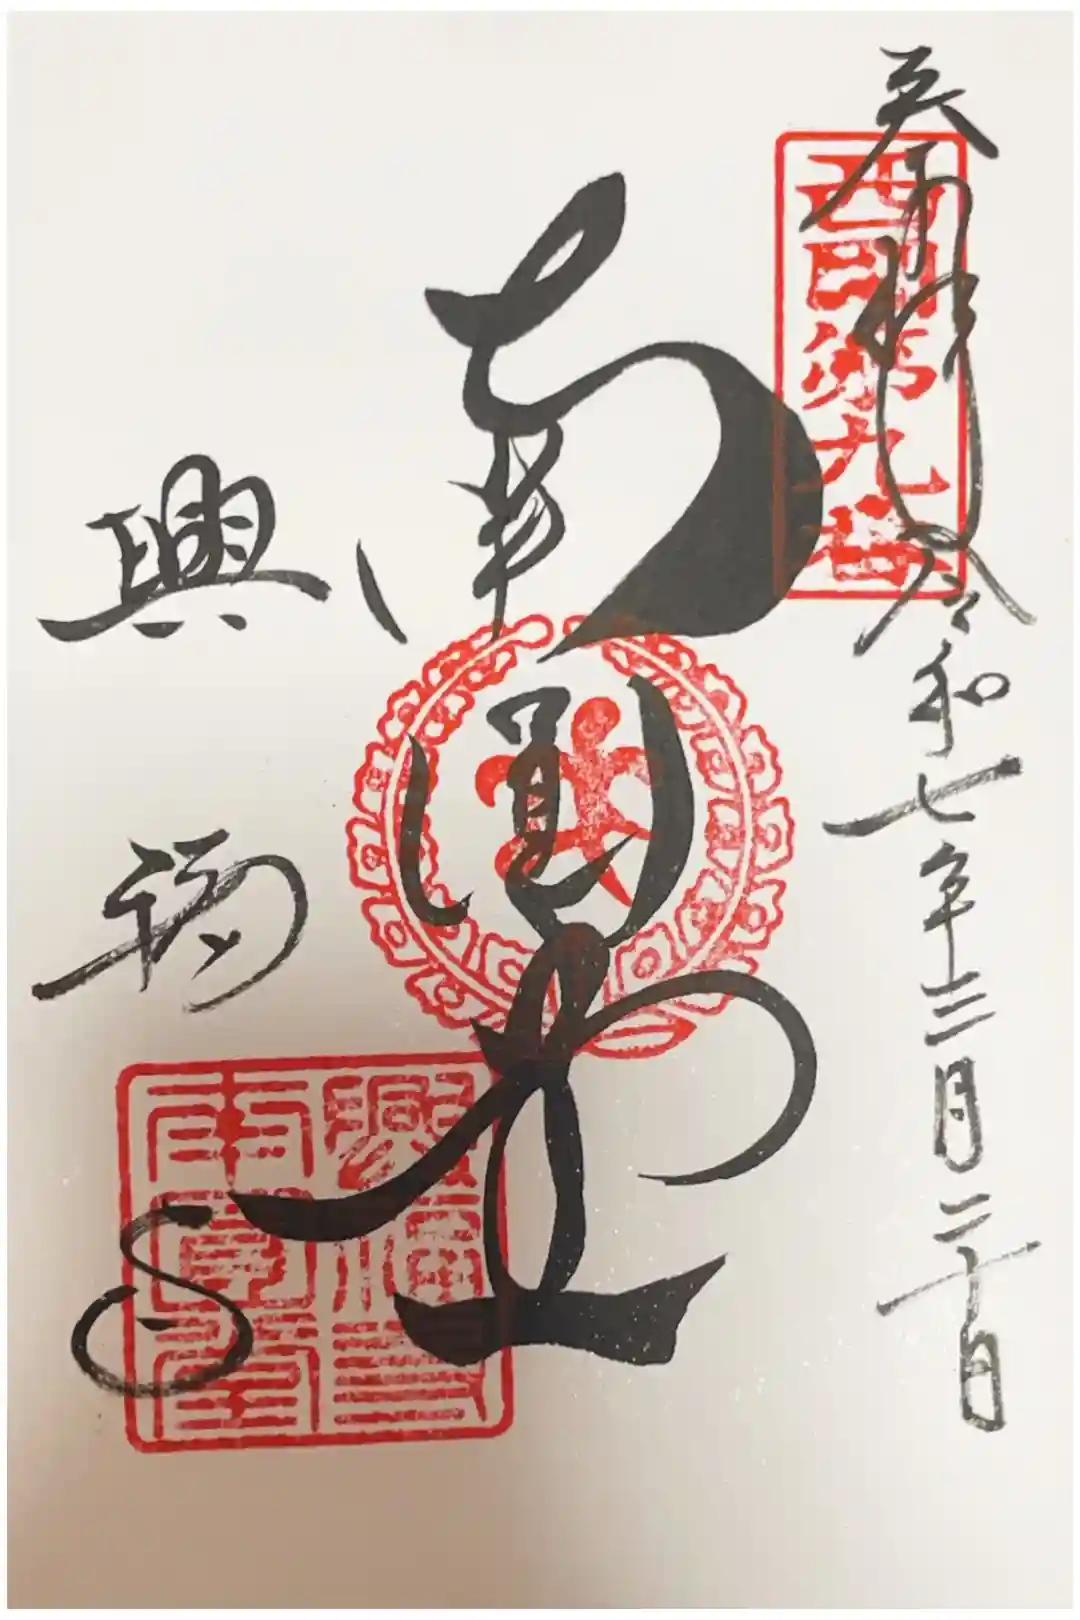 奉拝 令和七年三月二十日
西国第九番
南円堂
興福寺
興福寺
南円堂